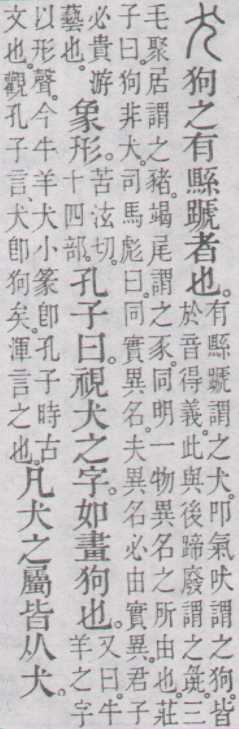 犬狗之有縣蹏者也。
有縣蹏謂之犬。叩氣吠謂之狗。皆
於音得義。此與後蹏廢謂之彘。三
毛聚居謂之豬。竭尾謂之豕。同明一物異名之所由也。莊
子曰狗非犬。司馬彪曰。同實異名。夫異名必由實異。君子
必貴游
藝也。
象形。
苦泫切。
十四部。
孔子曰。視犬之字。如畫狗也。
又曰。牛
羊之字
以形聲。今牛羊犬小篆卽孔子時古
文也。觀孔子言、犬卽狗矣。渾言之也。
凡犬之屬皆从犬。